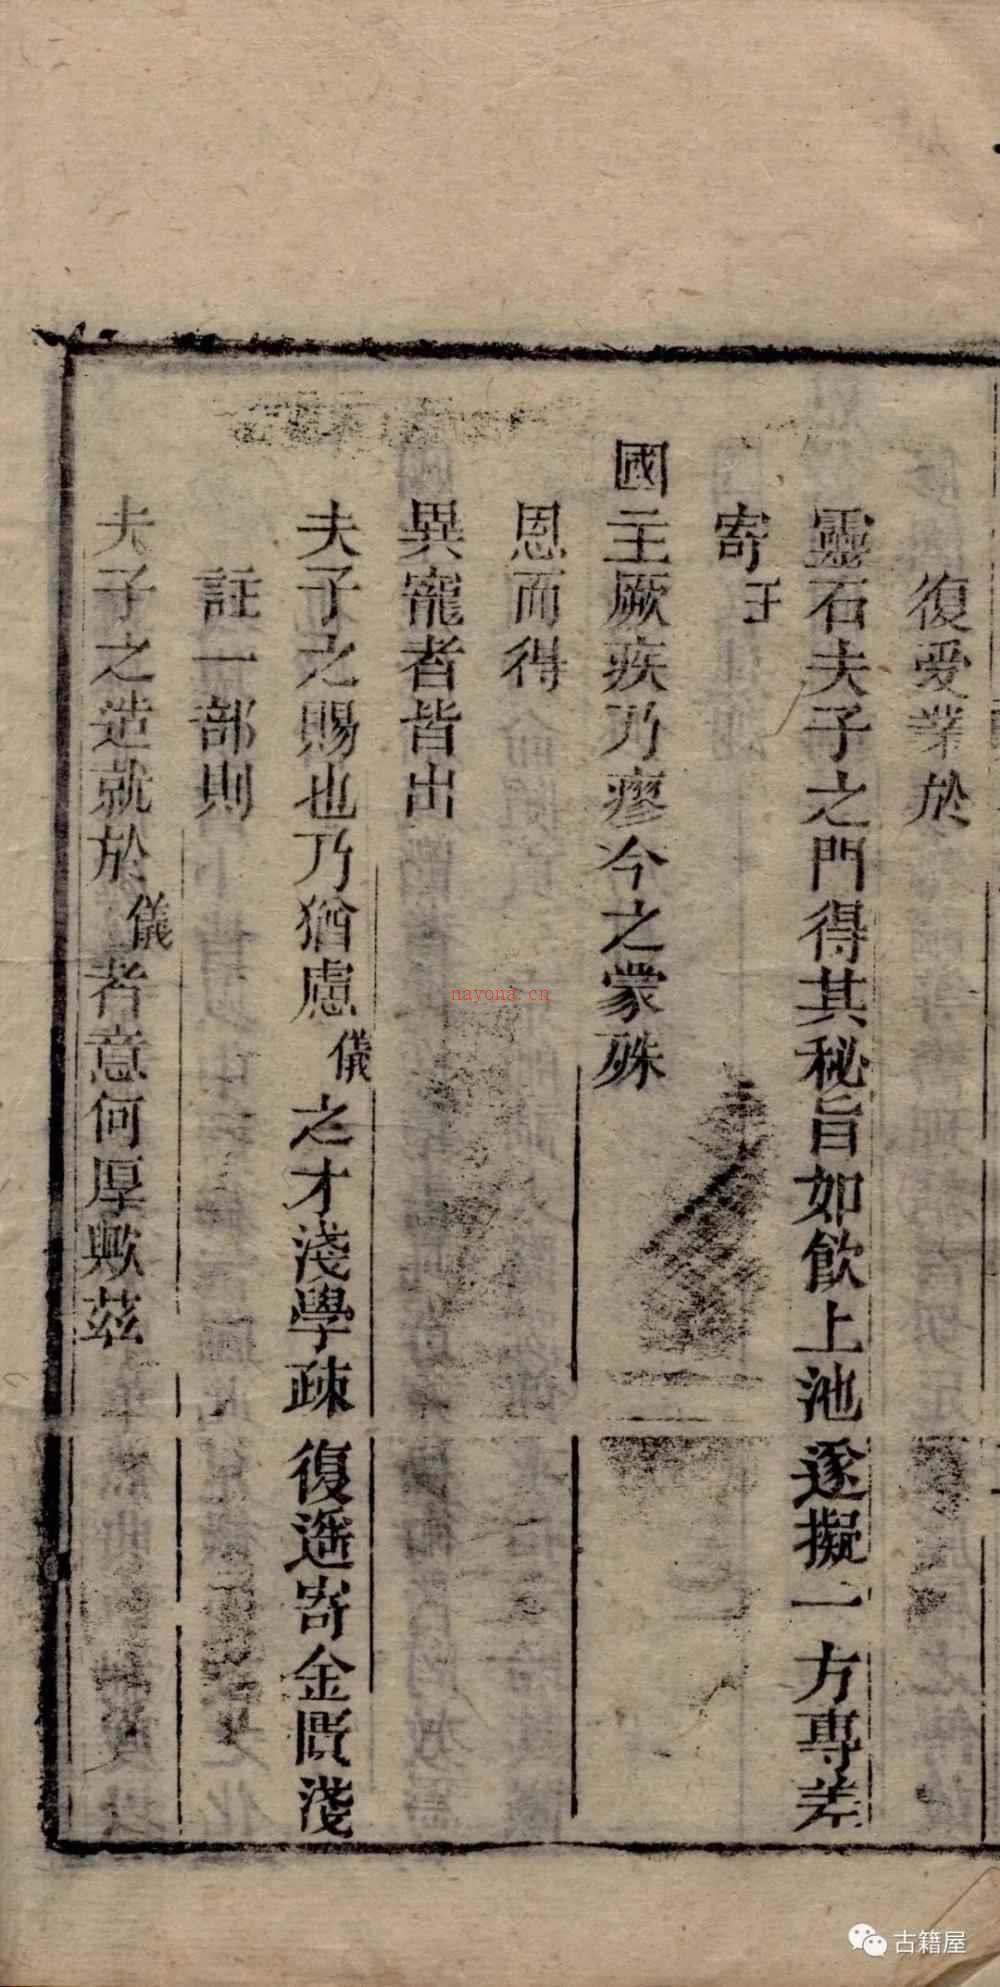 復受業於
靈石夫子之門得其秘旨如飲上池遂擬一方專差
寄王
國主厥疾乃瘳今之蒙殊
恩而得
異寵者皆出
夫子之賜也乃猶慮儀之才淺學疎復遥寄金匱淺
註一部則
夫子之造就於儀者意何厚歟茲
nayona.cn
古籍屋